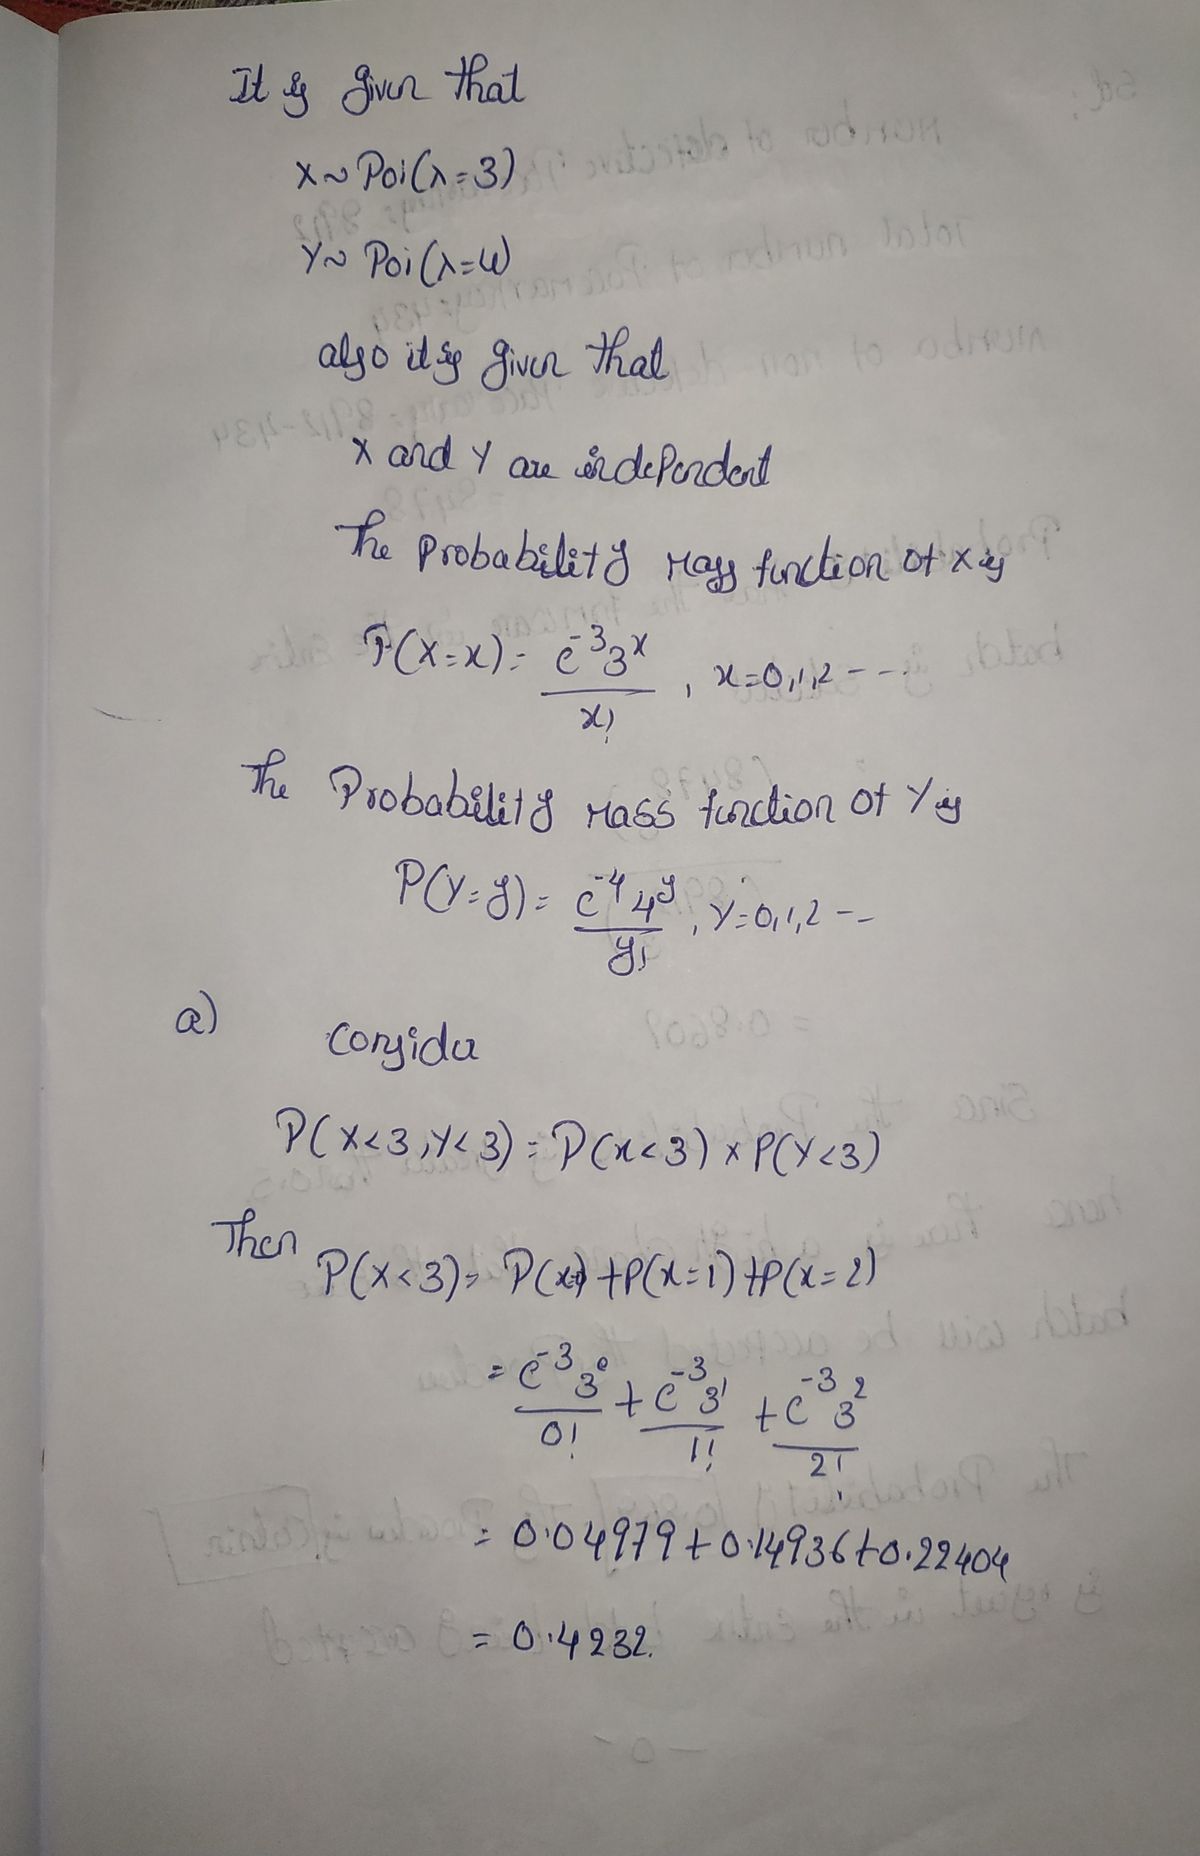 It is given that
X ~ Poi(λ=3)
Y ~ Poi(λ=4)
also it is given that
X and Y are independent
The Probability Mass function of X is
P(X=x) = e^-3 3^x / x! , x=0,1,2 - - -
The Probability Mass function of Y is
P(Y=y) = e^-4 4^y / y! , Y=0,1,2 - -
a) Consider
P(X<3,Y<3) = P(x<3) x P(Y<3)
Then P(X<3) = P(x=0) + P(x=1) + P(x=2)
= e^-3 3^0 / 0! + e^-3 3^1 / 1! + e^-3 3^2 / 2!
= 0.04979 + 0.14936 + 0.22404
= 0.4232.